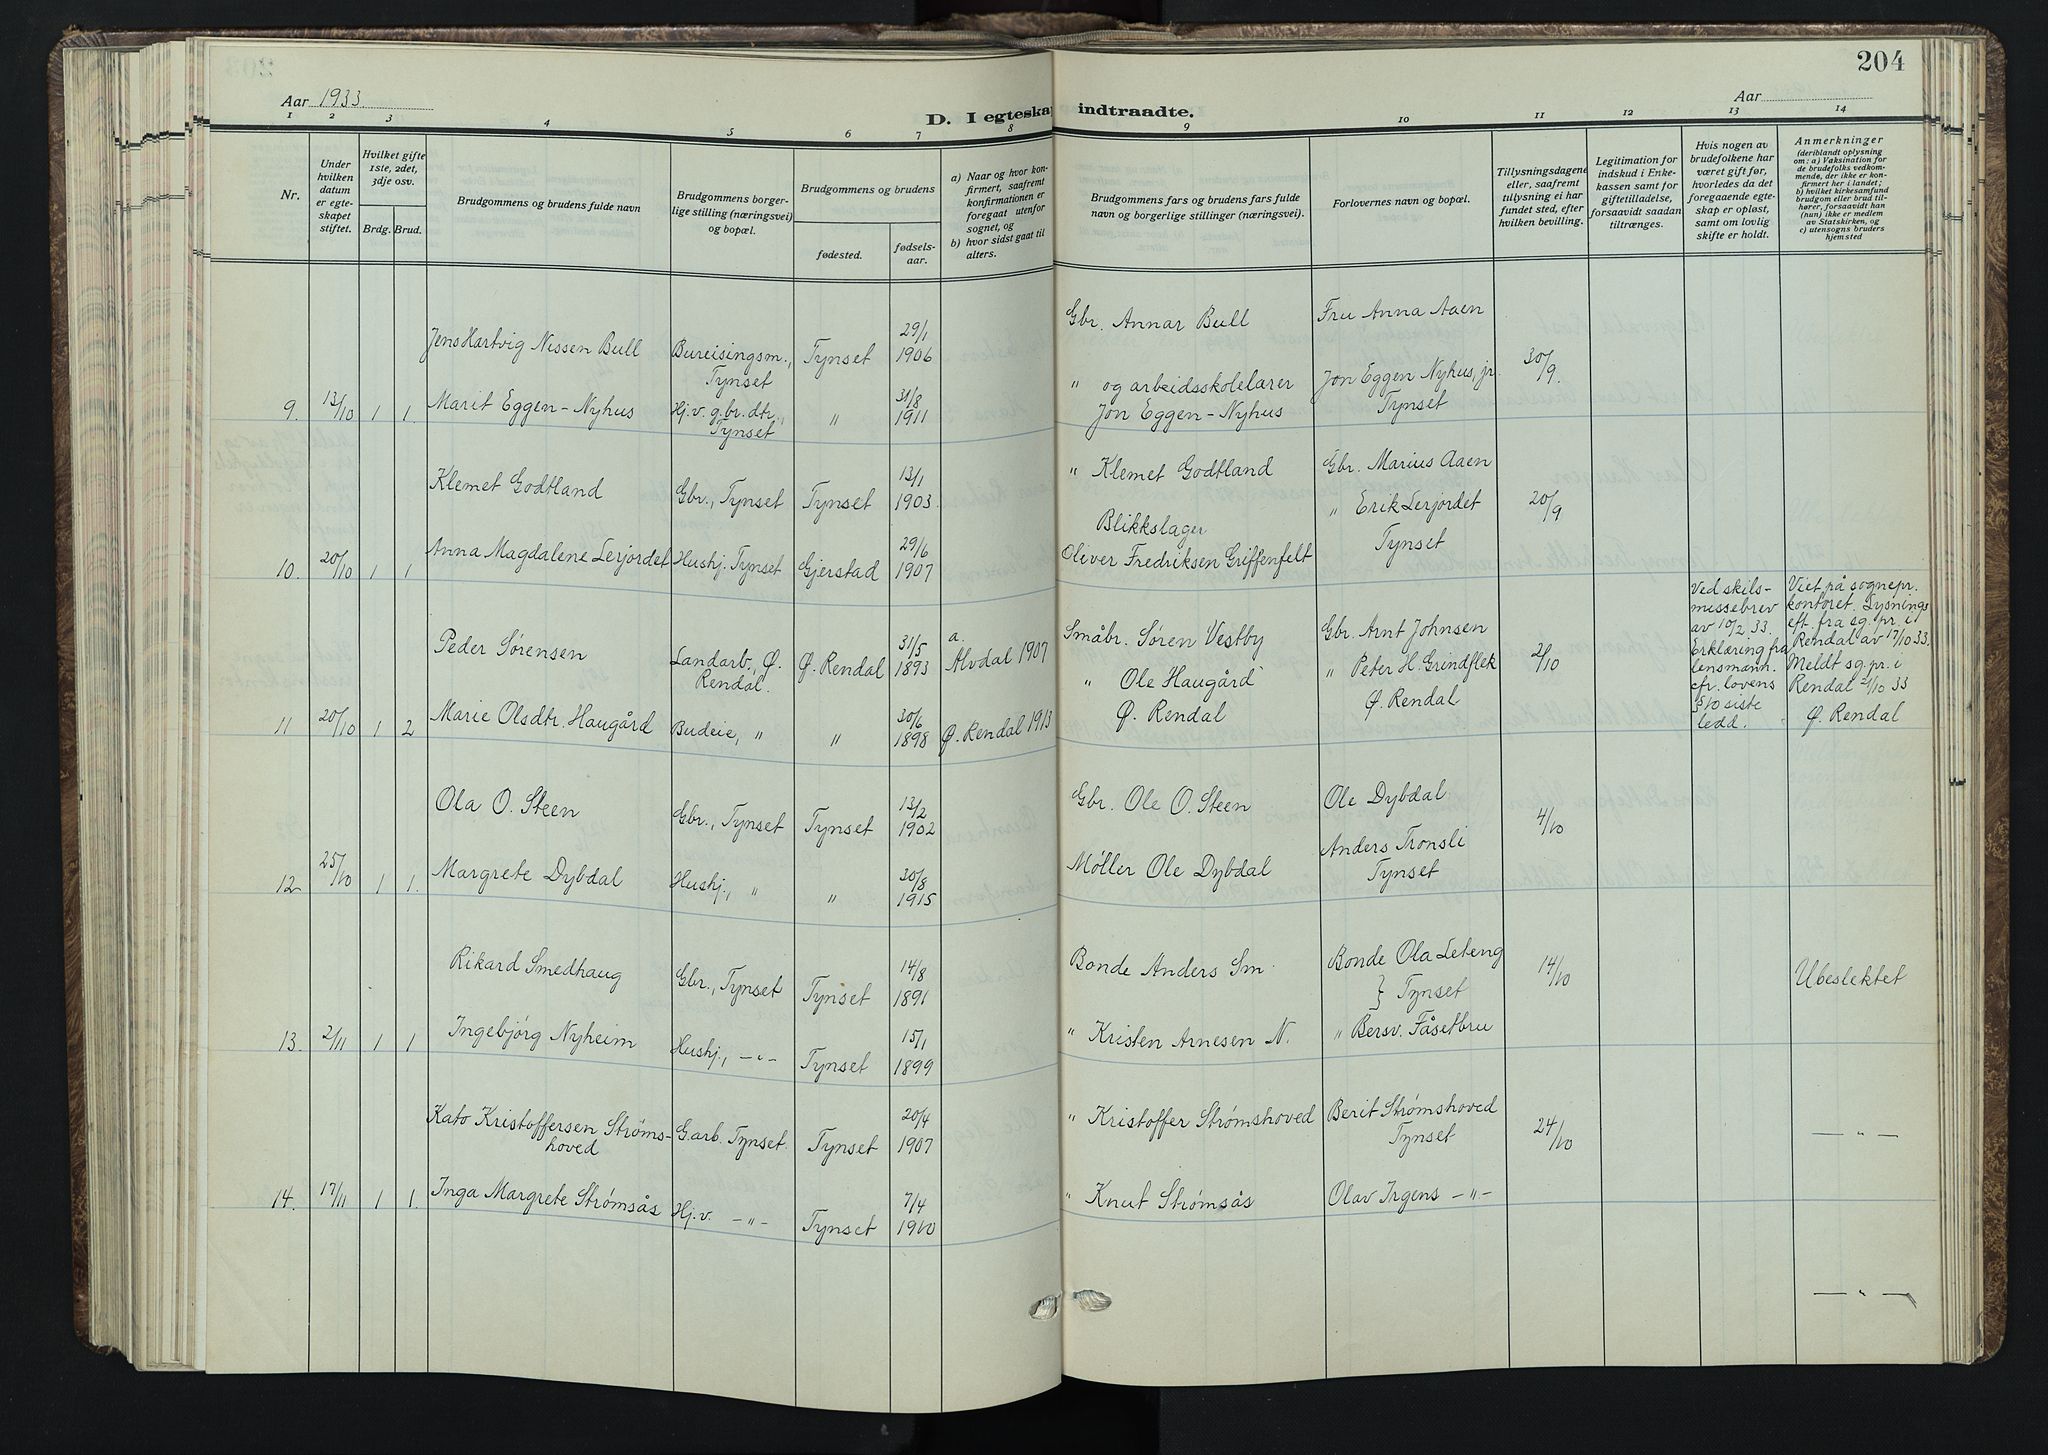 204
Aar 1933.
Aar
D. I egteskap indtraadte.
1 2 3 4 5 6 7 8 9 10 11 12 13 14
Nr.
Under hvilken datum er egteskapet stiftet.
Hvilket gifte 1ste, 2det, 3dje osv.
Brdg. Brud.
Brudgommens og brudens fulde navn
Brudgommens borgerlige stilling (næringsvei) og bopæl.
Brudgommens og brudens
fødested.
fødselsaar.
a) Naar og hvor konfirmert, saafremt konfirmationen er foregaat utenfor sognet, og
b) hvor sidst gaat til alters.
Brudgommens fars og brudens fars fulde navn og borgerlige stillinger (næringsvei).
Forlovernes navn og bopæl.
Tillysningsdagene eller, saafremt tillysning ei har fundet sted, efter hvilken bevilling.
Legitimation for indskud i Enkekassen samt for giftetilladelse, forsaavidt saadan tiltrænges.
Hvis nogen av brudefolkene har været gift før, hvorledes da det foregaaende egteskap er opløst, samt om lovlig skifte er holdt.
Anmerkninger
(deriblandt oplysning om: a) Vaksination for de brudefolks vedkommende, der ikke er konfirmert her i landet; b) hvilket kirkesamfund brudgom eller brud tilhører, forsaavidt han (hun) ikke er medlem av Statskirken, og c) utensogns bruders hjemsted
Jens Hartvig Nissen Bull Bureisingsm., Tynset Tynset 29/1 1906 Gbr. Annar Bull Fru Anna Aaen
9. 13/10 1 1. Marit Eggen-Nyhus Hj.v. g.br.dtr., Tynset " 31/8 1911 " og arbeidsskolelærer Jon Eggen-Nyhus Jon Eggen Nyhus, jr. Tynset 30/9.
Klemet Godtland Gbr., Tynset Tynset 13/1 1903 " Klemet Godtland Gbr. Marius Aaen
10. 20/10 1 1 Anna Magdalene Lerjordet Hushj. Tynset Gjerstad 29/6 1907 Blikkslager Oliver Fredriksen Griffenfelt " Erik Lerjordet Tynset 20/9
Peder Sørensen Landarb., Ø. Rendal. Ø. Rendal 31/5 1893 a. Alvdal 1907 Småbr. Søren Vestby Gbr. Arnt Johnsen 2/10
11 20/10 1 2 Marie Olsdtr. Haugård Budeie, " " 30/6 1898 Ø. Rendal 1913 " Ole Haugård Ø. Rendal " Peter H. Grindflek Ø. Rendal
Ved skilsmissebrev av 10/2 33 Erklæring fra lensmann. cfr. lovens § 10 siste ledd.
Viet på sognepr. kontoret. Lysnings eft. fra sg. pr. i Rendal av 17/10 33. Meldt sg. pr. i Rendal 21/10 33 Ø. Rendal
Ola O. Steen Gbr., Tynset Tynset 13/2 1902 Gbr. Ole O. Steen Ole Dybdal 4/10
12 25/10 1 1. Margrete Dybdal Hushj., " " 30/8 1915 Møller Ole Dybdal Anders Tronsli Tynset
Rikard Smedhaug Gbr., Tynset Tynset 14/8 1891 Bonde Anders Sm. Bonde Ola Leteng } Tynset 14/10 Ubeslektet
13. 2/11 1 1 Ingebjørg Nyheim Hushj., -"- Tynset 15/1 1899 " Kristen Arnesen N. " Bersv. Fåsetbru
Kato Kristoffersen Strømshoved G.arb. Tynset. Tynset 20/4 1907 " Kristoffer Strømshoved Berit Strømshoved Tynset 24/10 -"-
14. 17/11 1 1. Inga Margrete Strømsås Hj.v. -"- Tynset 7/4 1910 " Knut Strømsås Olav Irgens -"-
-"-